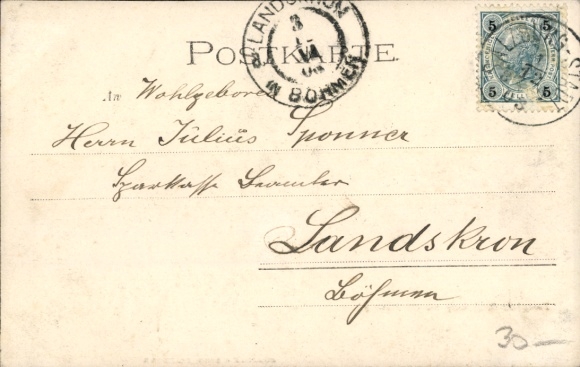 LANDSKRON
IN BÖHMEN
POSTKARTE.
5 5
5 5
An Wohlgeboren
Herrn Julius Sponner
Sparkasse Beamter
Landskron
Böhmen
30—